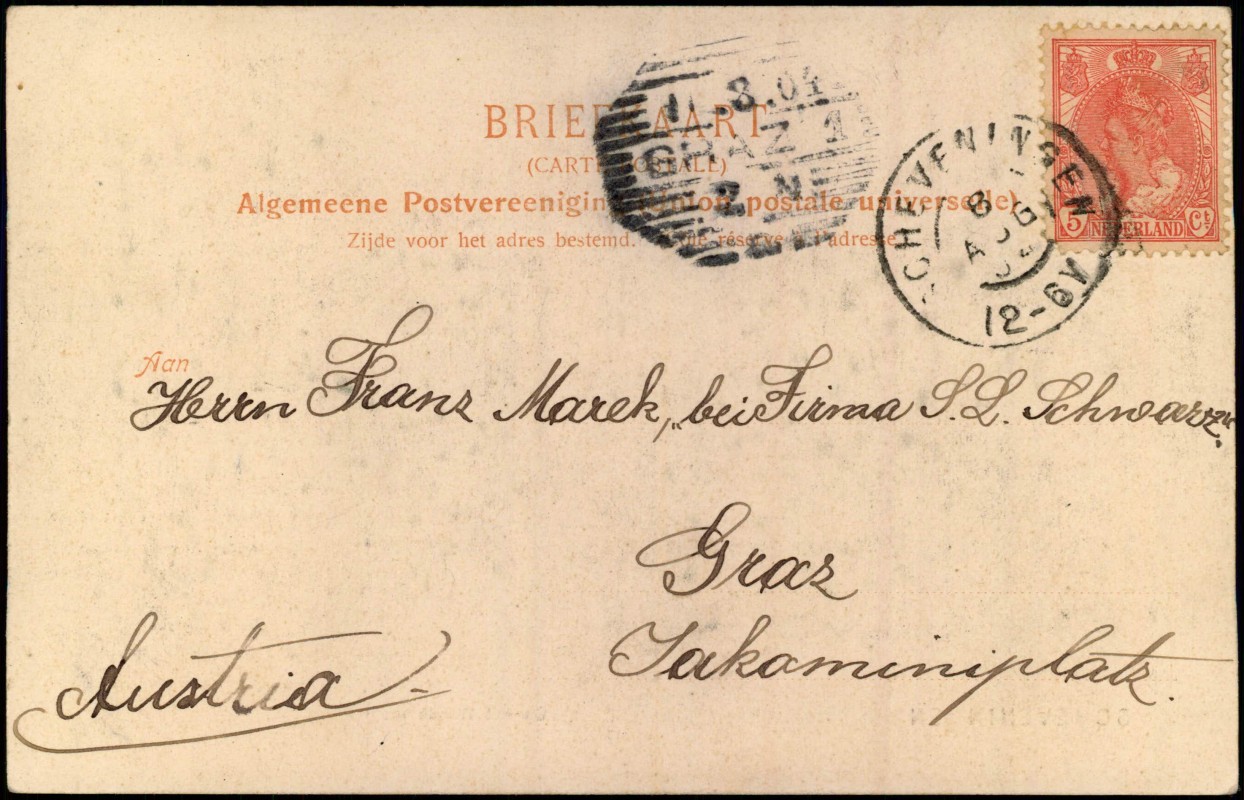 BRIEFKAART
(CARTE POSTALE)
Algemeene Postvereeniging (Union postale universelle)
Zijde voor het adres bestemd. Côté réservé à l'adresse
11.8.04
GRAZ 1
2 N
SCHEVENINGEN
8
AUG
12-6V
5 NEDERLAND Ct
Aan
Herrn Franz Marek, "bei Firma S. L. Schwarz."
Graz
Jakominiplatz.
Austria.